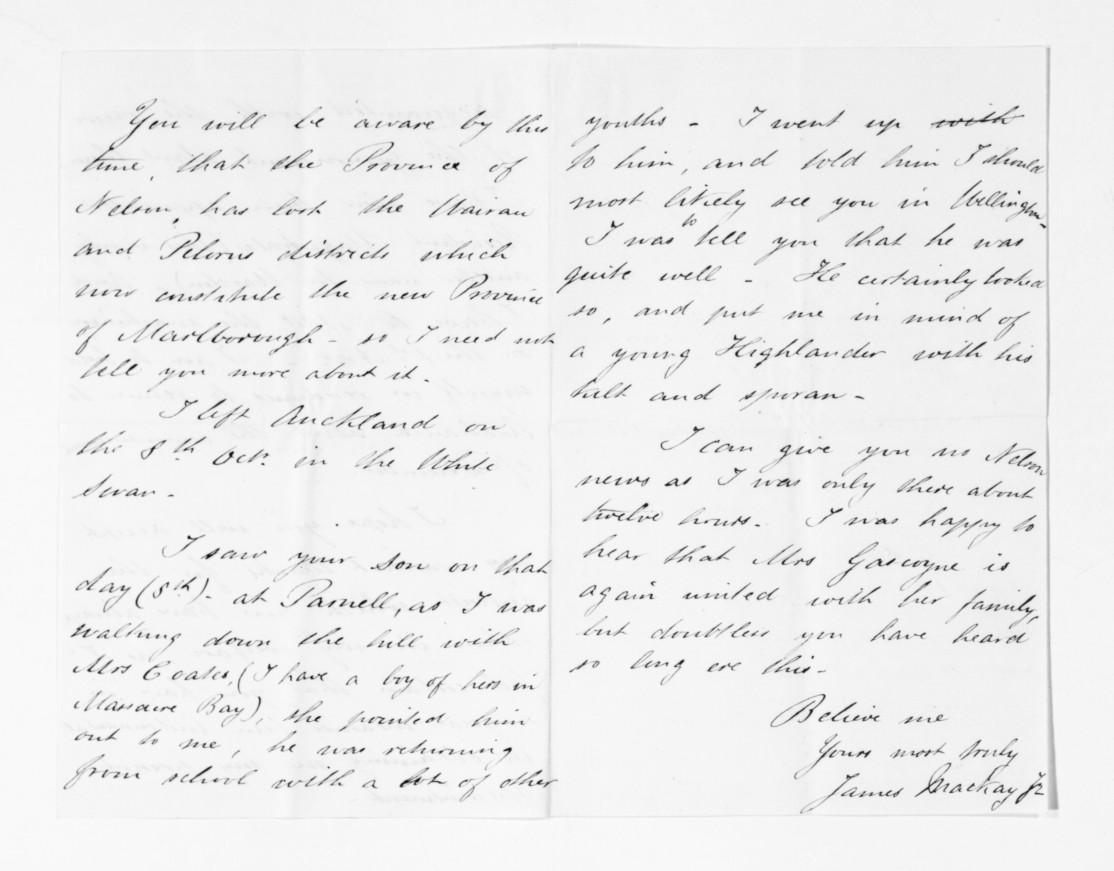 You will be aware by this
time, that the Province of
Nelson, has lost the Wairau
and Pelorus districts which
now constitute the new Province
of Marlborough - so I need not
tell you more about it.
I left Auckland on
the 8th Octr. in the White
Swan -
I saw your son on that
day (8th) - at Parnell, as I was
walking down the hill with
Mrs Coates, (I have a boy of hers in
Massacre Bay), she pointed him
out to me, he was returning
from school with a lot of other
youths - I went up with
to him, and told him I should
most likely see you in Wellington -
I was to tell you that he was
quite well - He certainly looked
so, and put me in mind of
a young Highlander with his
kilt and sporan -
I can give you no Nelson
news as I was only there about
twelve hours - I was happy to
hear that Mrs Gascoyne is
again united with her family,
but doubtless you have heard
so long ere this -
Believe me
Yours most truly
James Mackay Jr